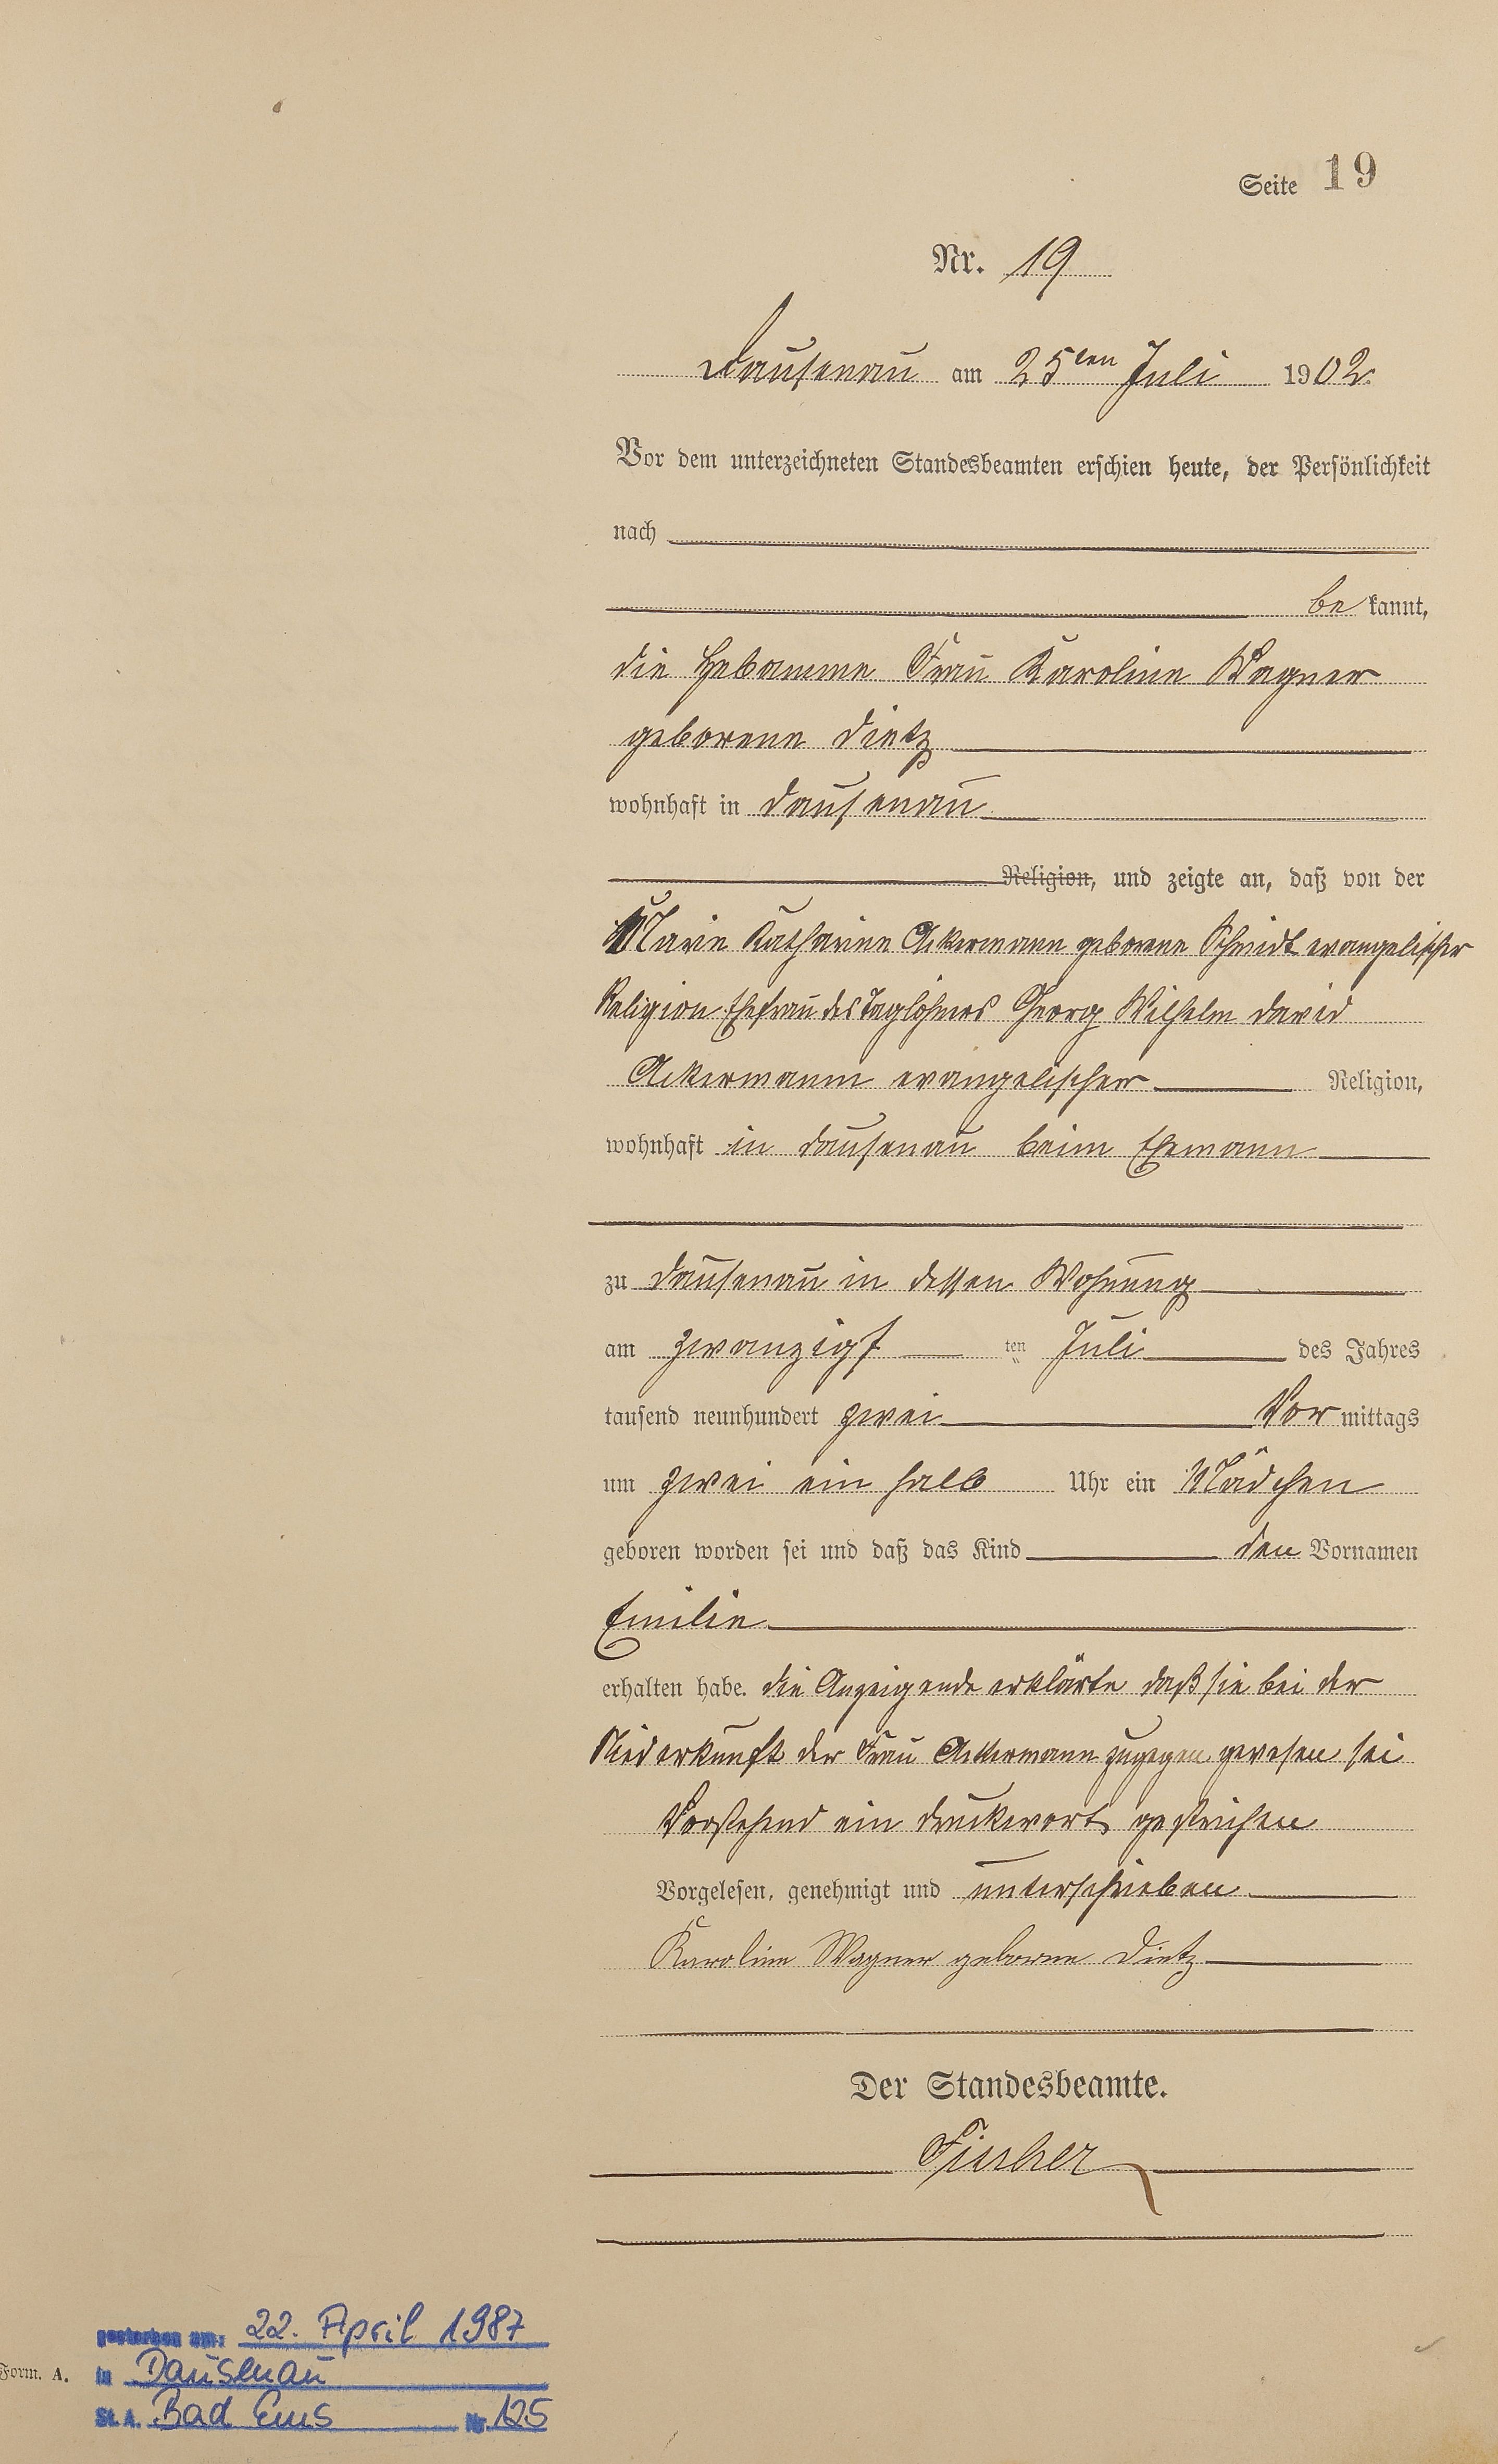 Seite 19
Nr. 19
Dausenau am 25ten Juli 1902.
Vor dem unterzeichneten Standesbeamten erschien heute, der Persönlichkeit
nach
be kannt,
die Hebamme Frau Karoline Wagner
geborene Dietz
wohnhaft in Dausenau
Religion, und zeigte an, daß von der
Marie Katharine Ackermann geborene Schmidt evangelischer
Religion Ehefrau des Taglöhners Georg Wilhelm David
Ackermann evangelischer Religion,
wohnhaft in Dausenau beim Ehemann
zu Dausenau in dessen Wohnung
am zwanzigs ten Juli des Jahres
tausend neunhundert zwei Vor mittags
um zwei ein halb Uhr ein Mädchen
geboren worden sei und daß das Kind den Vornamen
Emilie
erhalten habe. Die Anzeigende erklärte daß sie bei der
Niederkunft der Frau Ackermann zugegen gewesen sei
Vorstehend ein Druckwort gestrichen
Vorgelesen, genehmigt und unterschrieben
Karoline Wagner geborne Dietz
Der Standesbeamte.
Fischer
gestorben am: 22. April 1987
Form. A. in Dausenau
St. A. Bad Ems Nr. 125